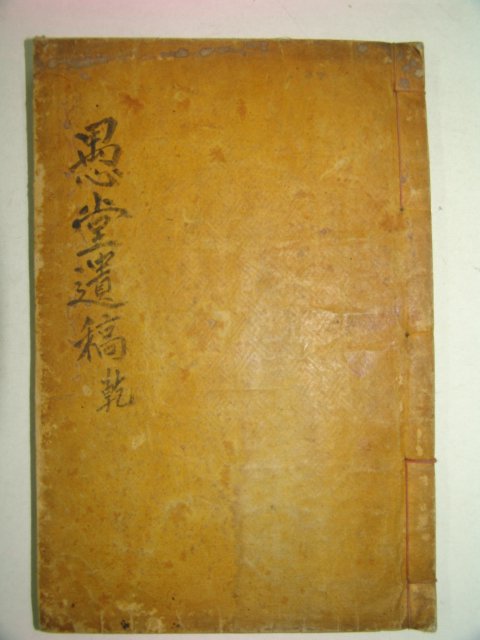 愚堂遺稿 乾